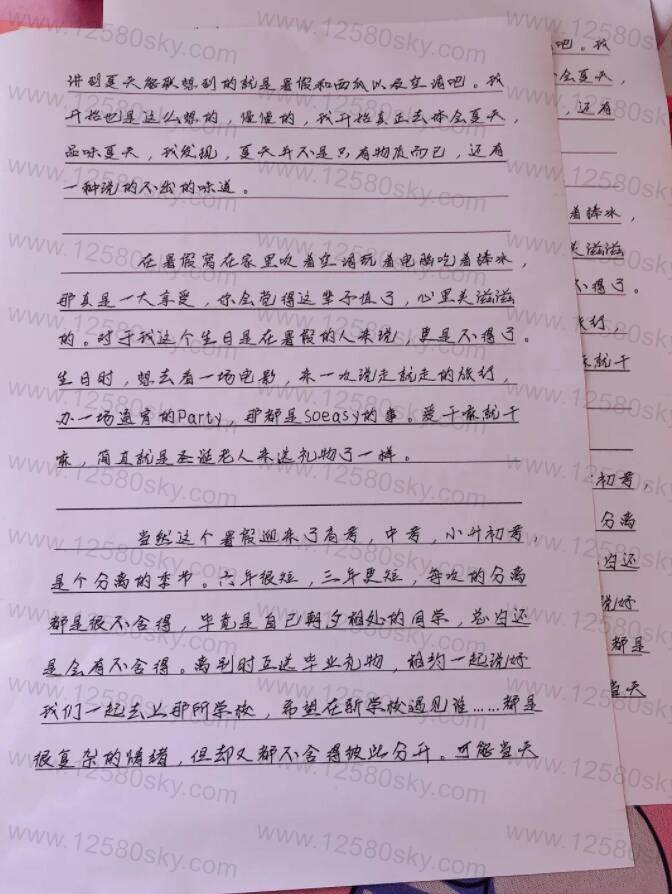 讲到夏天能联想到的就是暑假和西瓜以及空调吧。我
开始也是这么想的，慢慢的，我开始真正去体会夏天，
品味夏天，我发现，夏天并不是只有物质而已，还有
一种说的不出的味道。
在暑假窝在家里吹着空调玩着电脑吃着棒冰，
那真是一大享受，你会觉得这辈子值了，心里美滋滋
的。对于我这个生日是在暑假的人来说，更是不得了。
生日时，想去看一场电影，来一次说走就走的旅行，
办一场通宵的Party，那都是soeasy的事。爱干嘛就干
嘛，简直就是圣诞老人来送礼物了一样。
当然这个暑假迎来了高考，中考，小升初考，
是个分离的季节。六年很短，三年更短，每次的分离
都是很不舍得，毕竟是自己朝夕相处的同学，总归还
是会有不舍得。离别时互送毕业礼物，相约一起说好
我们一起去上那所学校，希望在新学校遇见谁……都是
很复杂的情绪，但却又都不舍得彼此分开。可能当天
吧。我
会夏天，
，还有
着棒冰，
美滋滋
不得了。
旅行，
嘛就干
初考，
分离
总归还
说好
都是
当天
www.12580sky.com